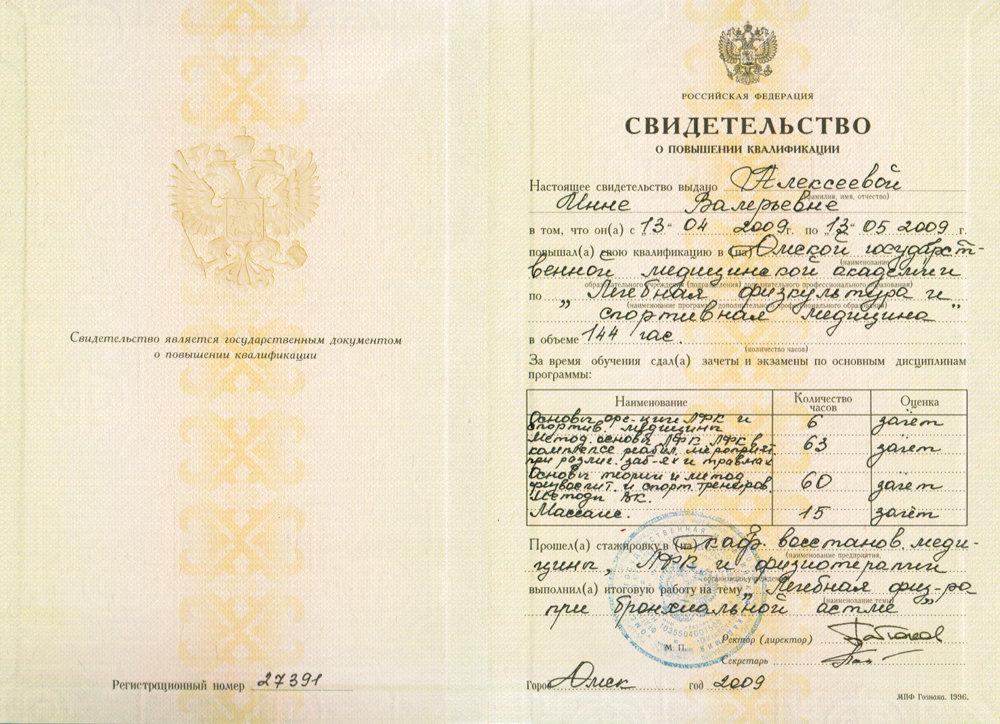 Свидетельство является государственным документом
о повышении квалификации
Регистрационный номер 27391
РОССИЙСКАЯ ФЕДЕРАЦИЯ
СВИДЕТЕЛЬСТВО
О ПОВЫШЕНИИ КВАЛИФИКАЦИИ
Настоящее свидетельство выдано Алексеевой
(фамилия, имя, отчество)
Инне Валерьевне
в том, что он(а) с 13 " 04 2009 г. по "13" 05 2009 г.
повышал(а) свою квалификацию в (на) Омской государст-
(наименование
венной медицинской академии
образовательного учреждения (подразделения) дополнительного профессионального образования)
по „ Лечебная физкультура и
(наименование программы дополнительного профессионального образования)
спортивная медицина "
в объеме 144 час.
(количество часов)
За время обучения сдал(а) зачеты и экзамены по основным дисциплинам
программы:
Наименование Количество часов Оценка
Основы орг-ции ЛФК и
спортив. медицины 6 зачёт
Метод. основы ЛФК ЛФК в
комплексе реабил. мероприят. 63 зачёт
при различ. заб-ях и травмах
Основы теории и метод.
физвоспит. и спорт. трениров. 60 зачёт
Методы ВК.
Массаж. 15 зачёт
Прошел(а) стажировку в (на) каф. восстанов. меди-
(наименование предприятия,
цины, ЛФК и физиотерапии
организации, учреждения)
выполнил(а) итоговую работу на тему „ Лечебная физ-ра
(наименование темы)
при бронхиальной астме "
Ректор (директор)
М. П.
Секретарь
Город Омск год 2009
МПФ Гознака. 1996.